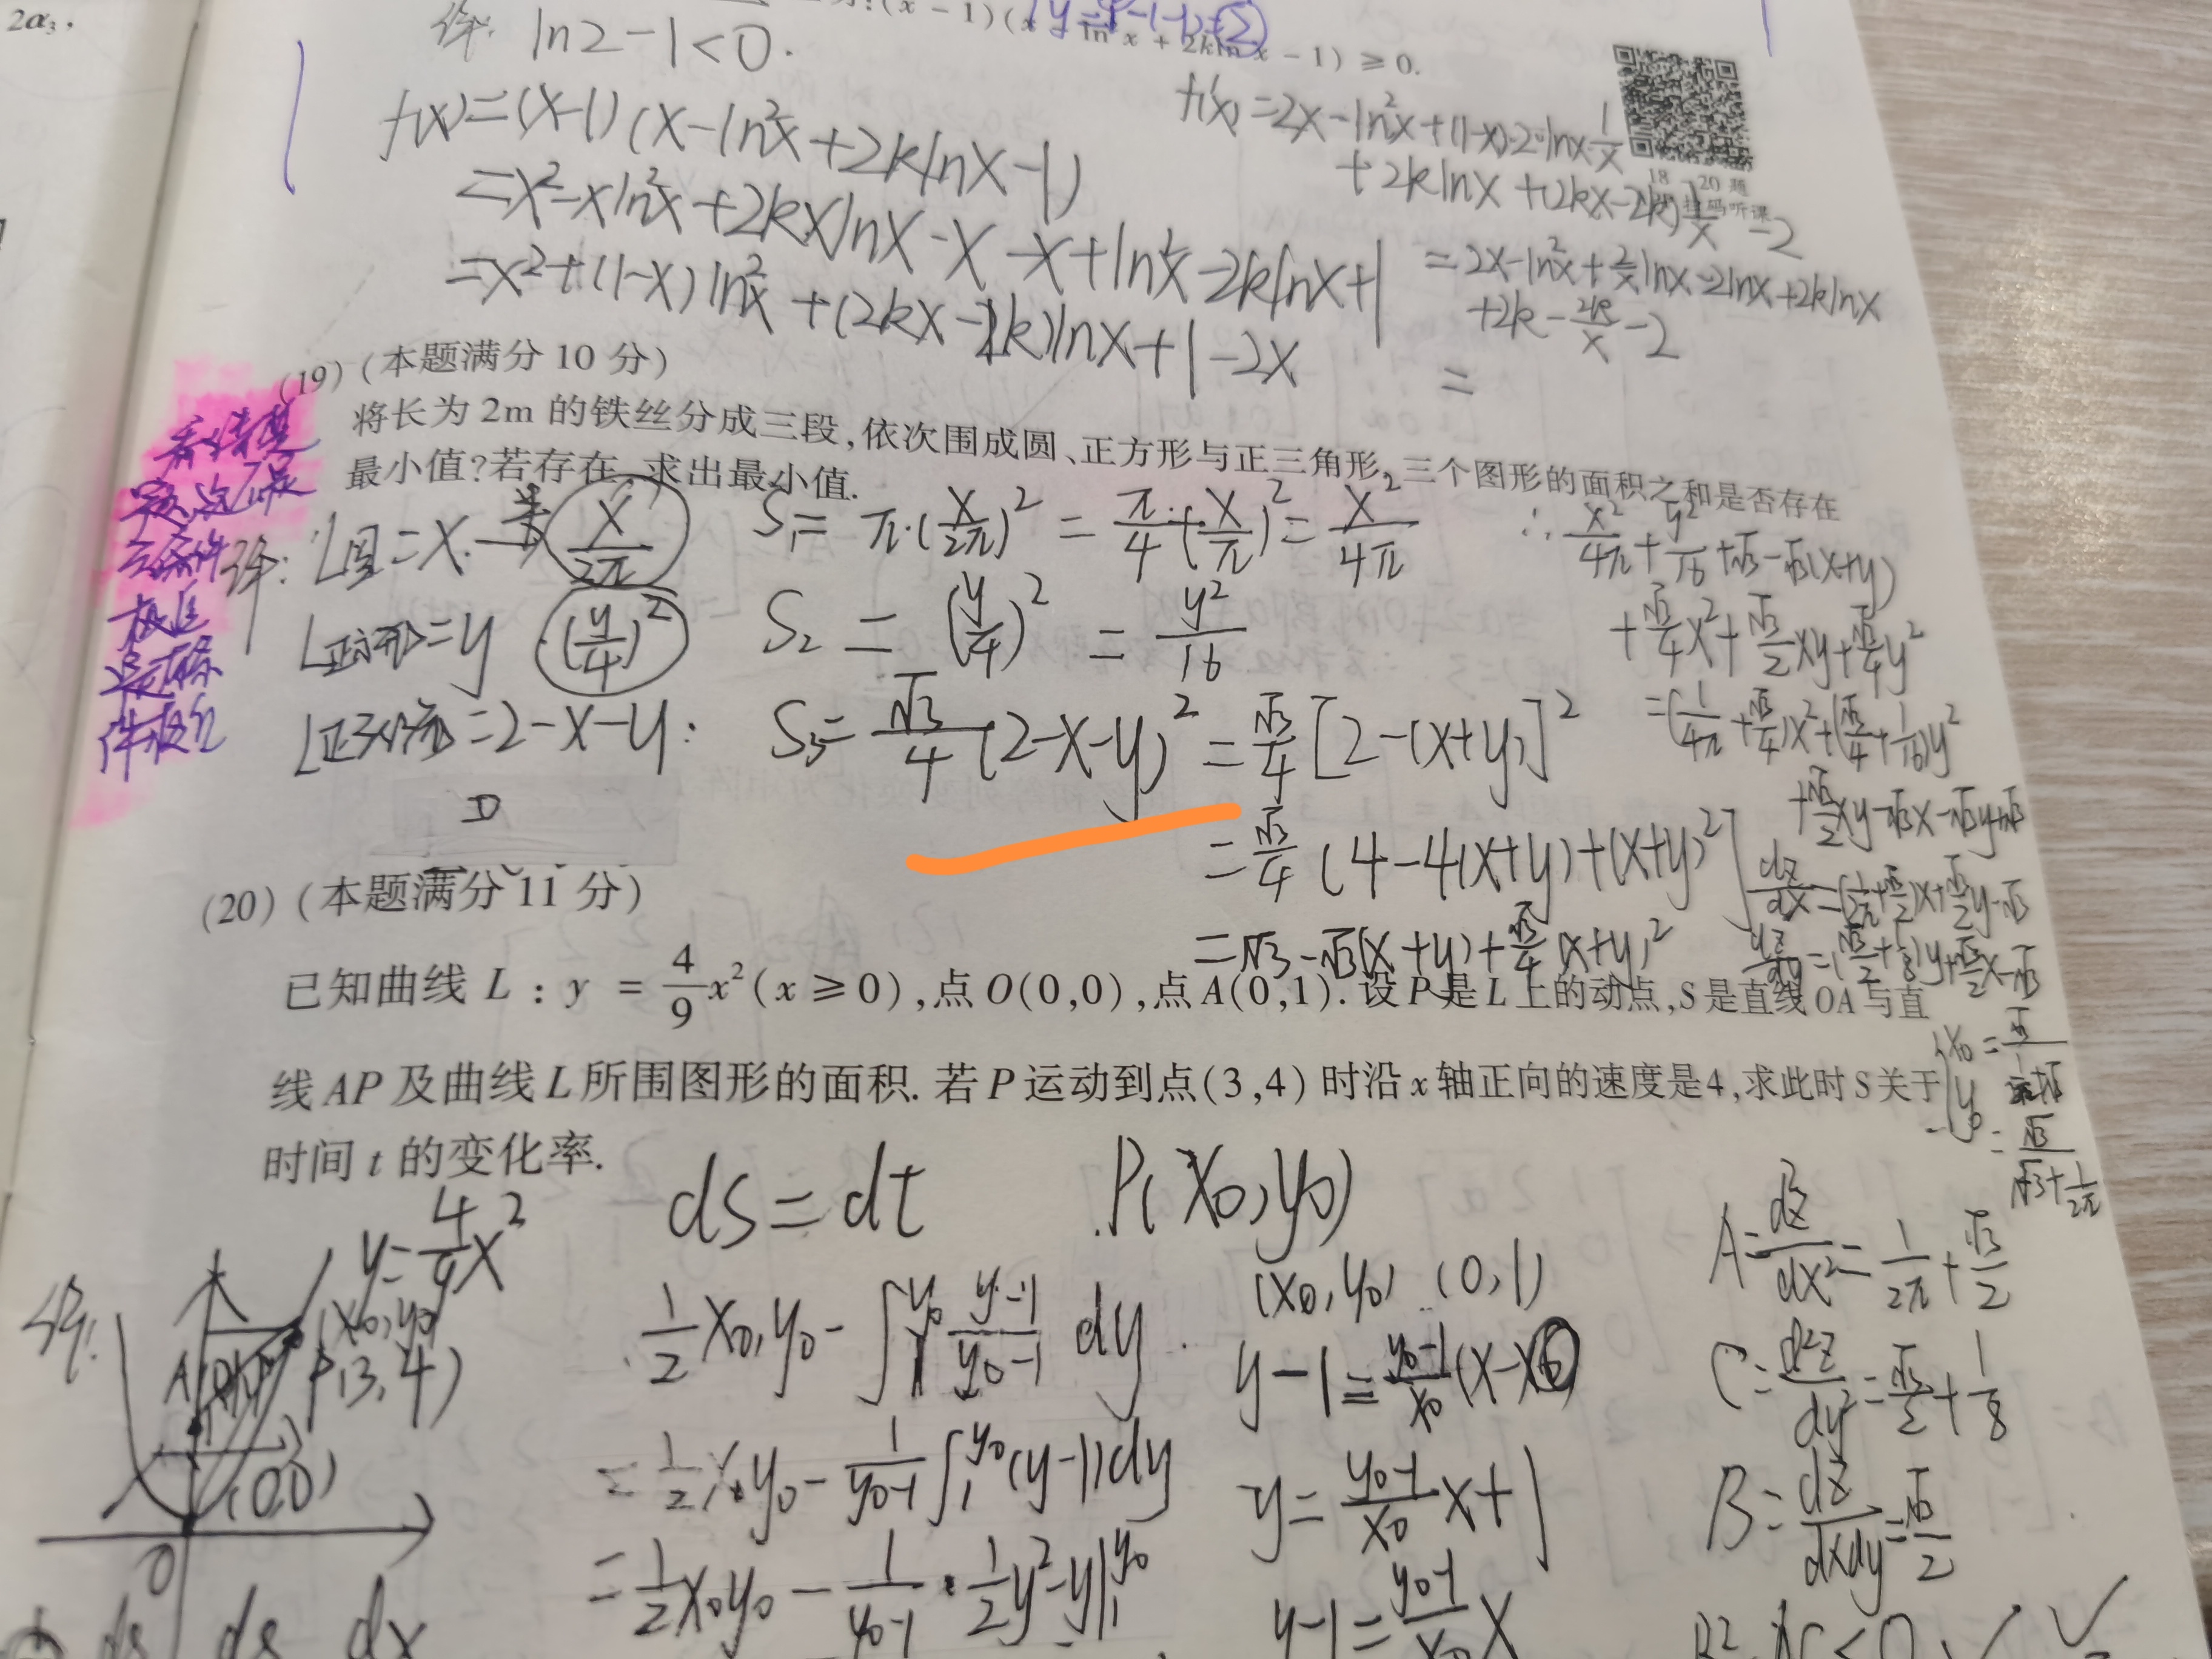 2α₃.
(x-1)(x-ln²x+2klnx-1)≥0.
ln2-1<0.
f(x)=(x-1)(x-ln²x+2klnx-1)
=x²-xln²x+2kxlnx-x-x+ln²x-2klnx+1
=x²+(1-x)ln²x+(2kx-2k)lnx+1-2x
f'(x)=2x-ln²x+(1-x)·2·lnx·1/x
+2klnx+(2kx-2k)1/x-2
=2x-ln²x+2/x lnx-2lnx+2klnx
+2k-2k/x-2
=
18—20题
扫码听课
(19)(本题满分 10 分)
将长为 2m 的铁丝分成三段,依次围成圆、正方形与正三角形,三个图形的面积之和是否存在
最小值?若存在,求出最小值.
L圆=x. x/2π S₁=π·(x/2π)²=π/4·(x/π)²=x²/4π
L正方形=y (y/4)² S₂=(y/4)²=y²/16
L正三角形=2-x-y: S₃=√3/4(2-x-y)²=√3/4[2-(x+y)]²
=√3/4(4-4(x+y)+(x+y)²]
=√3-√3(x+y)+√3/4(x+y)²
∴x²/4π+y²/16+√3-√3(x+y)
+√3/4x²+√3/2xy+√3/4y²
=(1/4π+√3/4)x²+(√3/4+1/16)y²
+√3/2xy-√3x-√3y+√3
dz/dx=(1/2π+√3/2)x+√3/2y-√3
dz/dy=(√3/2+1/8)y+√3/2x-√3
(20)(本题满分 11 分)
已知曲线 L : y = 4/9x²(x≥0),点 O(0,0),点 A(0,1). 设 P 是 L 上的动点,S 是直线 OA 与直
线 AP 及曲线 L 所围图形的面积. 若 P 运动到点(3,4) 时沿 x 轴正向的速度是4,求此时 S 关于
时间 t 的变化率.
ds=dt P(x₀,y₀)
y=4/9x²
(x₀,y₀)
P(3,4)
(0,0)
O
1/2x₀,y₀-∫₁^y₀ (y-1)/(y₀-1) dy.
=1/2x₀y₀-1/(y₀-1)∫₁^y₀(y-1)dy
=1/2x₀y₀-1/(y₀-1)·1/2y²-y|₁^y₀
(x₀,y₀) (0,1)
y-1=(y₀-1)/x₀(x-x0)
y=(y₀-1)/x₀x+1
y-1=(y₀-1)/x₀x
A=dz/dx²=1/2π+√3/2
C=d²z/dy²=√3/2+1/8
B=dz/dxdy=√3/2
ds ds dx